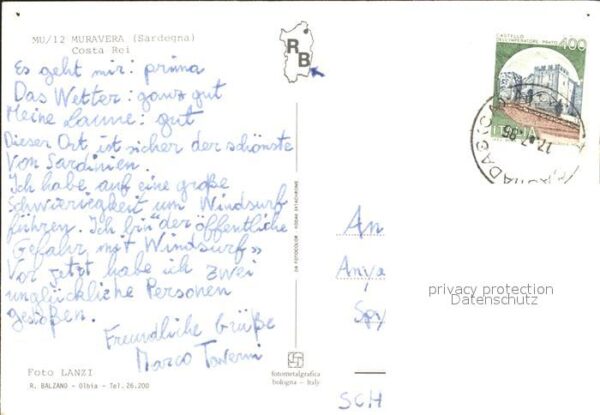 MU/12 MURAVERA (Sardegna)
Costa Rei
Es geht mir: prima
Das Wetter: ganz gut
Meine Laune: gut
Dieser Ort ist sicher der schönste
Von Sardinien.
Ich habe auf eine große
Schwierigkeit um Windsurf
führen. Ich bin "der öffentliche
Gefahr mit Windsurf»
Vor jetzt habe ich zwei
unglückliche Personen
gestoßen.
Freundliche Grüße
Marco Taverni
Foto LANZI
R. BALZANO - Olbia - Tel. 26.200
R B
DA FOTOCOLOR KODAK EKTACHROME
fotometalgrafica
bologna - Italy
CASTELLO
DELL'IMPERATORE - PRATO
400
ITALIA
An
Anya
Spy
SCH
privacy protection
Datenschutz